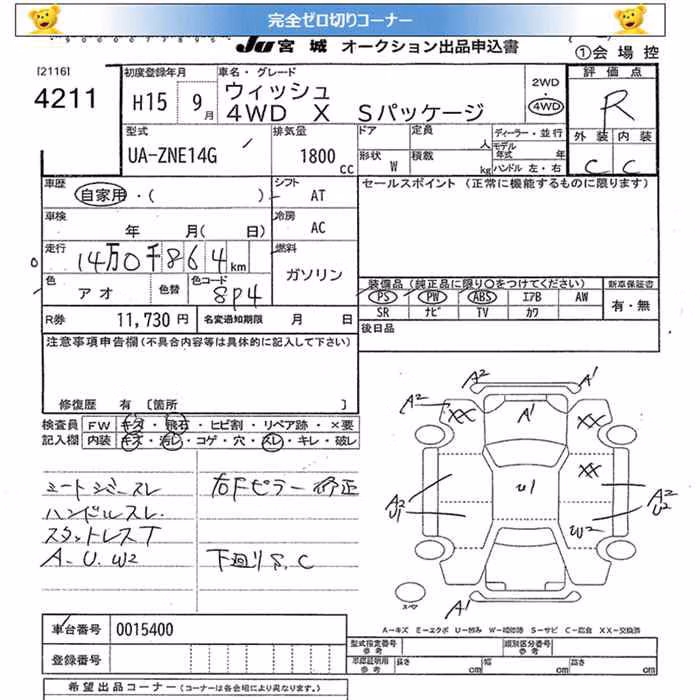 完全ゼロ切りコーナー
Ju 宮城 オークション出品申込書
①会場控
[2116]
4211
初度登録年月
H15 9月
車名・グレード
ウィッシュ
4WD X Sパッケージ
2WD
4WD
評価点
R
外装 内装
C C
型式
UA-ZNE14G
排気量
1800 cc
ドア
定員
人
形状 W
積載
kg
ディーラー・並行
モデル年式 年
ハンドル 左・右
車歴
自家用・( )
シフト AT
セールスポイント (正常に機能するものに限ります)
車検
年 月( 日)
冷房 AC
走行
14万0千864km
燃料
ガソリン
色 アオ
色替
色コード 8P4
装備品 (純正品に限り○をつけてください)
新車保証書
PS PW ABS エアB AW
有・無
SR ナビ TV カワ
R券 11,730円
名変通知期限 月 日
後日品
注意事項申告欄 (不具合内容等は具体的に記入して下さい)
修復歴 有 [箇所 ]
検査員記入欄
FW キズ・飛石・ヒビ割・リペア跡・×要
内装 キズ・汚レ・コゲ・穴・スレ・キレ・破レ
シートシワ・スレ
右Fピラー修正
ハンドルスレ.
スタットレスT
A-U.W2
下廻りS.C
A2 A1
A2 XX A1 XX
XX
A2
U1
U1
A2
U2
W2
A1
スペア
A-キズ E-エクボ U-凹み W-補修跡 S-サビ C-腐食 XX-交換済
車台番号 0015400
型式指定番号 参考
類別区分番号 参考
登録番号
車庫証明用 参考
長さ cm
幅 cm
高さ cm
希望出品コーナー (コーナーは各会場により異なります。)